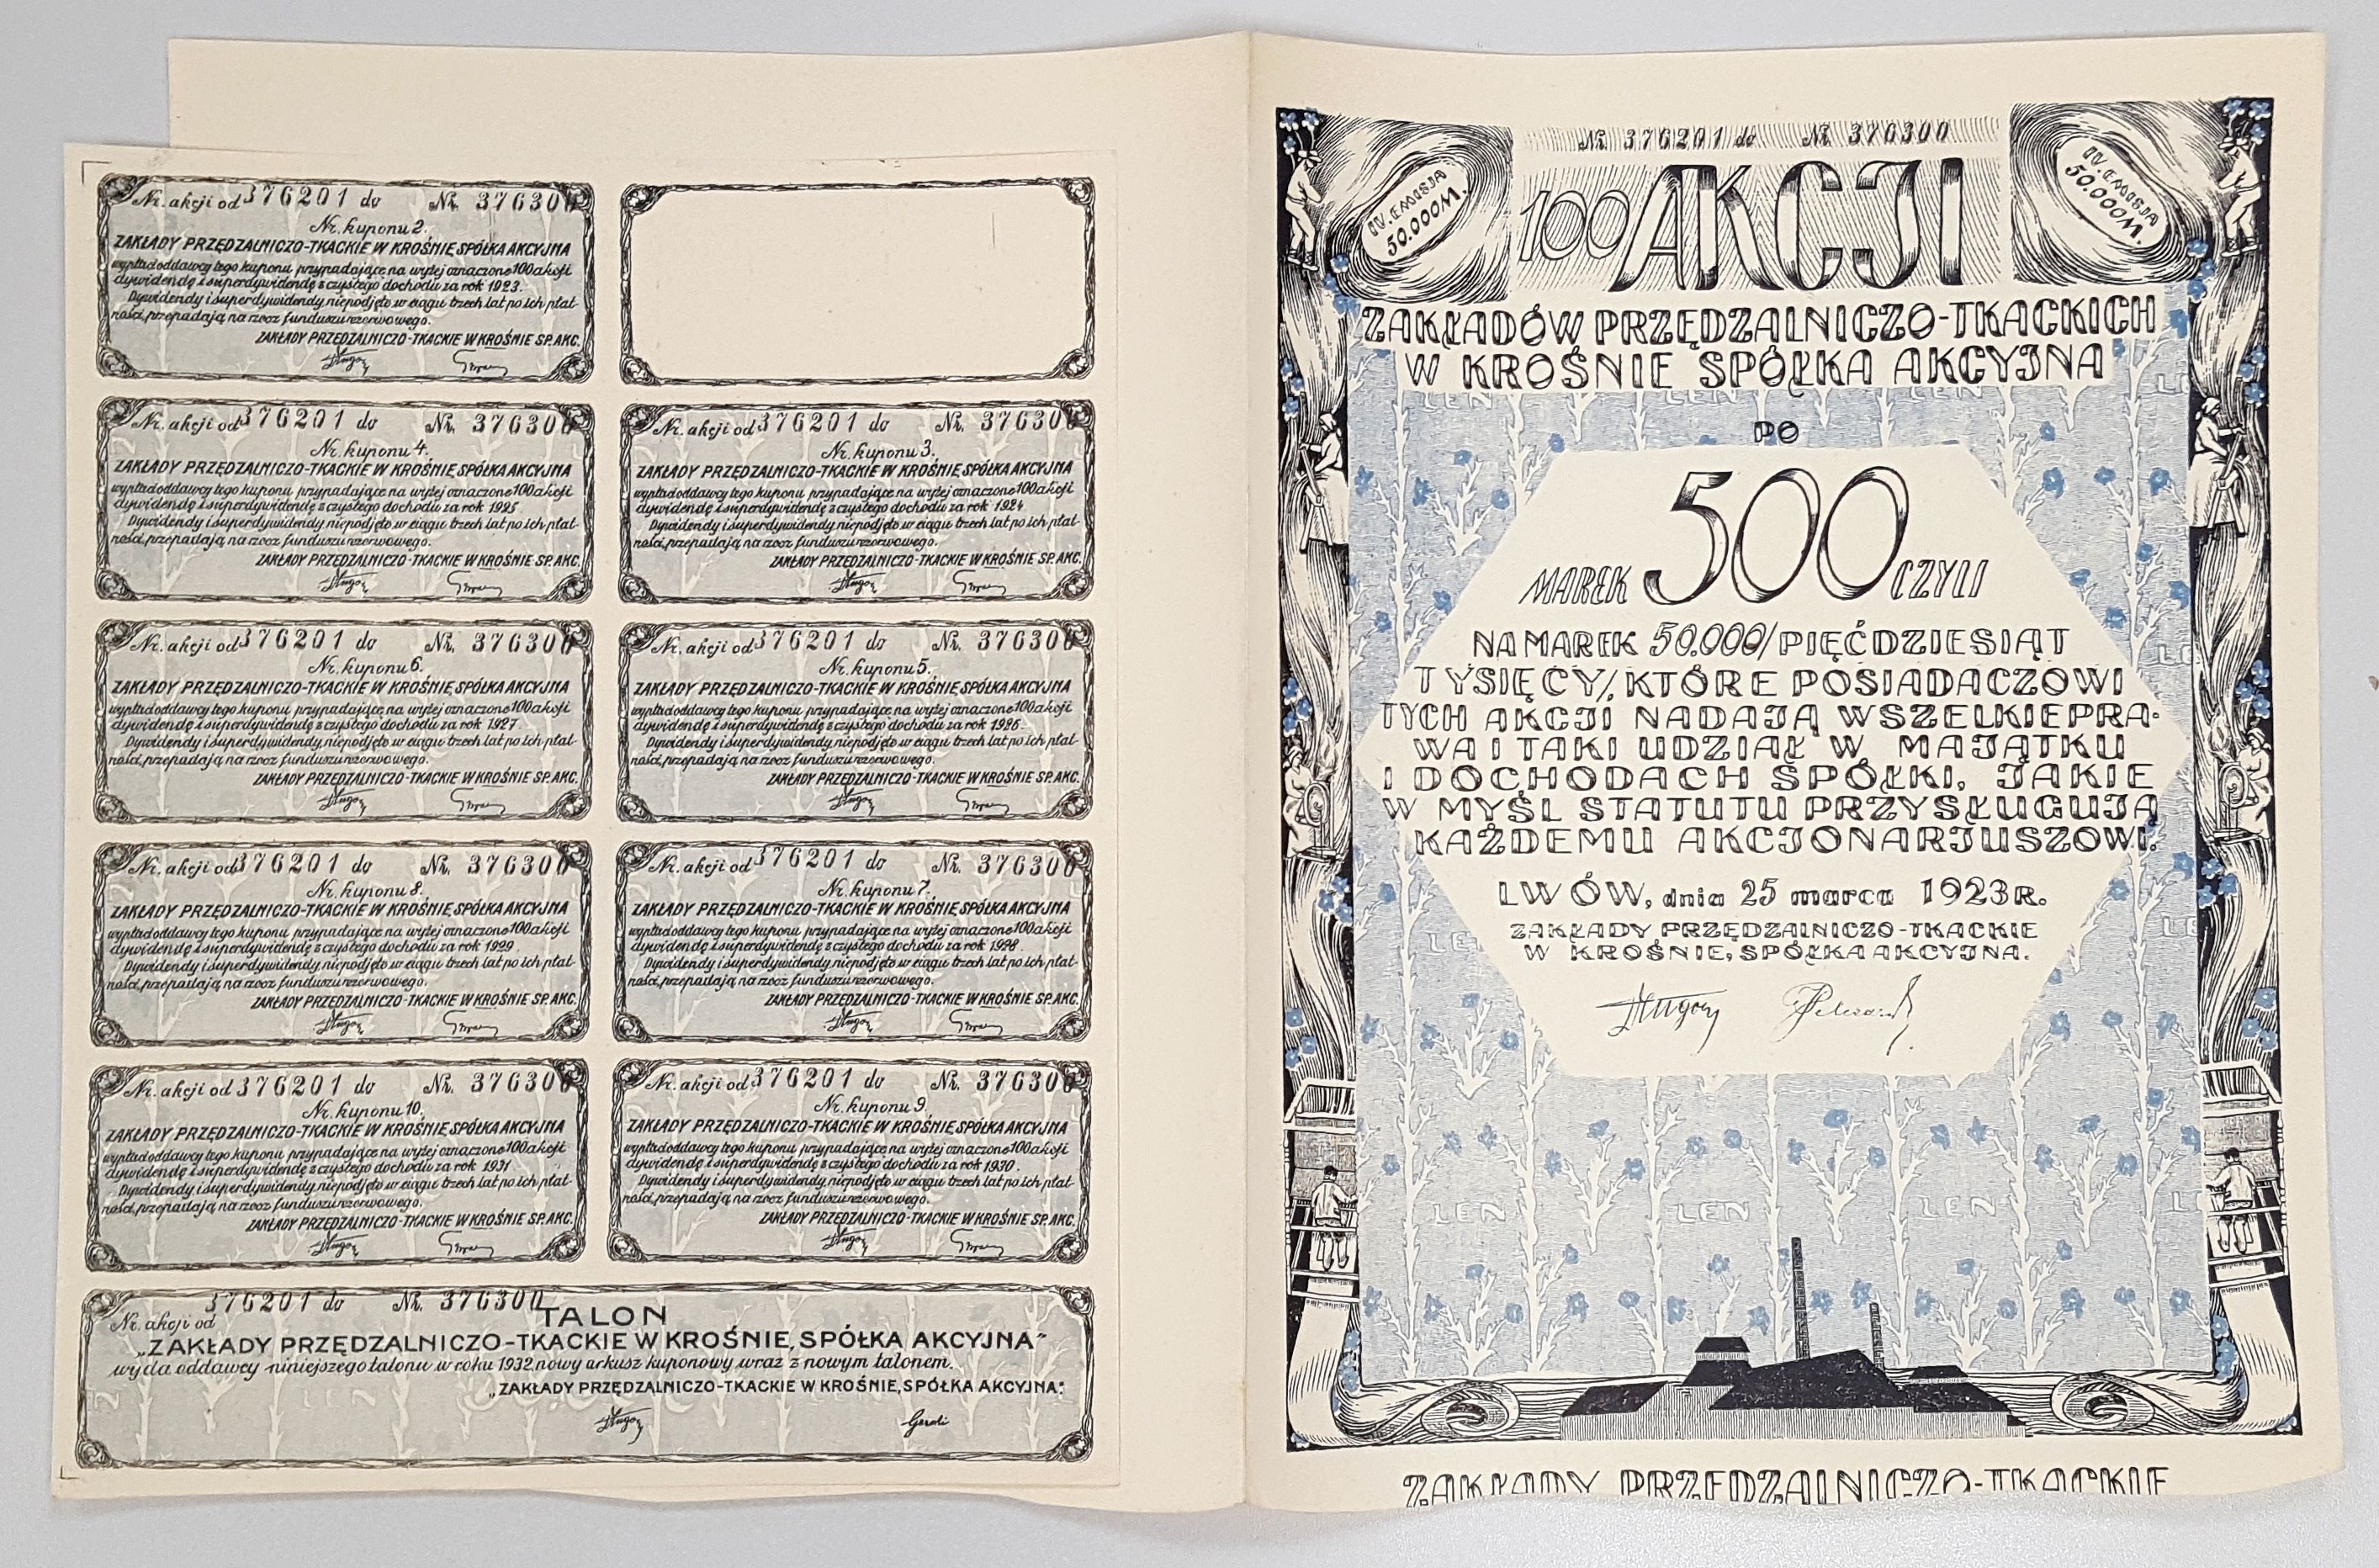 Nr. akcji od 376201 do Nr. 376300
Nr. kuponu 2.
ZAKŁADY PRZĘDZALNICZO-TKACKIE W KROŚNIE, SPÓŁKA AKCYJNA
wypłaci oddawcy tego kuponu przypadające na wyżej oznaczone 100 akcji
dywidendę i superdywidendę z czystego dochodu za rok 1923.
Dywidendy i superdywidendy, niepodjęte w ciągu trzech lat po ich płat-
ności, przepadają na rzecz funduszu rezerwowego.
ZAKŁADY PRZĘDZALNICZO-TKACKIE W KROŚNIE SP. AKC.
Nr. akcji od 376201 do Nr. 376300
Nr. kuponu 4.
ZAKŁADY PRZĘDZALNICZO-TKACKIE W KROŚNIE, SPÓŁKA AKCYJNA
wypłaci oddawcy tego kuponu przypadające na wyżej oznaczone 100 akcji
dywidendę i superdywidendę z czystego dochodu za rok 1925.
Dywidendy i superdywidendy, niepodjęte w ciągu trzech lat po ich płat-
ności, przepadają na rzecz funduszu rezerwowego.
ZAKŁADY PRZĘDZALNICZO-TKACKIE W KROŚNIE SP. AKC.
Nr. akcji od 376201 do Nr. 376300
Nr. kuponu 3.
ZAKŁADY PRZĘDZALNICZO-TKACKIE W KROŚNIE, SPÓŁKA AKCYJNA
wypłaci oddawcy tego kuponu przypadające na wyżej oznaczone 100 akcji
dywidendę i superdywidendę z czystego dochodu za rok 1924
Dywidendy i superdywidendy, niepodjęte w ciągu trzech lat po ich płat-
ności, przepadają na rzecz funduszu rezerwowego.
ZAKŁADY PRZĘDZALNICZO-TKACKIE W KROŚNIE SP. AKC.
Nr. akcji od 376201 do Nr. 376300
Nr. kuponu 6.
ZAKŁADY PRZĘDZALNICZO-TKACKIE W KROŚNIE, SPÓŁKA AKCYJNA
wypłaci oddawcy tego kuponu przypadające na wyżej oznaczone 100 akcji
dywidendę i superdywidendę z czystego dochodu za rok 1927.
Dywidendy i superdywidendy, niepodjęte w ciągu trzech lat po ich płat-
ności, przepadają na rzecz funduszu rezerwowego.
ZAKŁADY PRZĘDZALNICZO-TKACKIE W KROŚNIE SP. AKC.
Nr. akcji od 376201 do Nr. 376300
Nr. kuponu 5.
ZAKŁADY PRZĘDZALNICZO-TKACKIE W KROŚNIE, SPÓŁKA AKCYJNA
wypłaci oddawcy tego kuponu przypadające na wyżej oznaczone 100 akcji
dywidendę i superdywidendę z czystego dochodu za rok 1926.
Dywidendy i superdywidendy, niepodjęte w ciągu trzech lat po ich płat-
ności, przepadają na rzecz funduszu rezerwowego.
ZAKŁADY PRZĘDZALNICZO-TKACKIE W KROŚNIE SP. AKC.
Nr. akcji od 376201 do Nr. 376300
Nr. kuponu 8.
ZAKŁADY PRZĘDZALNICZO-TKACKIE W KROŚNIE, SPÓŁKA AKCYJNA
wypłaci oddawcy tego kuponu przypadające na wyżej oznaczone 100 akcji
dywidendę i superdywidendę z czystego dochodu za rok 1929.
Dywidendy i superdywidendy, niepodjęte w ciągu trzech lat po ich płat-
ności, przepadają na rzecz funduszu rezerwowego.
ZAKŁADY PRZĘDZALNICZO-TKACKIE W KROŚNIE SP. AKC.
Nr. akcji od 376201 do Nr. 376300
Nr. kuponu 7.
ZAKŁADY PRZĘDZALNICZO-TKACKIE W KROŚNIE, SPÓŁKA AKCYJNA
wypłaci oddawcy tego kuponu przypadające na wyżej oznaczone 100 akcji
dywidendę i superdywidendę z czystego dochodu za rok 1928.
Dywidendy i superdywidendy, niepodjęte w ciągu trzech lat po ich płat-
ności, przepadają na rzecz funduszu rezerwowego.
ZAKŁADY PRZĘDZALNICZO-TKACKIE W KROŚNIE SP. AKC.
Nr. akcji od 376201 do Nr. 376300
Nr. kuponu 10.
ZAKŁADY PRZĘDZALNICZO-TKACKIE W KROŚNIE, SPÓŁKA AKCYJNA
wypłaci oddawcy tego kuponu przypadające na wyżej oznaczone 100 akcji
dywidendę i superdywidendę z czystego dochodu za rok 1931
Dywidendy i superdywidendy, niepodjęte w ciągu trzech lat po ich płat-
ności, przepadają na rzecz funduszu rezerwowego.
ZAKŁADY PRZĘDZALNICZO-TKACKIE W KROŚNIE SP. AKC.
Nr. akcji od 376201 do Nr. 376300
Nr. kuponu 9.
ZAKŁADY PRZĘDZALNICZO-TKACKIE W KROŚNIE, SPÓŁKA AKCYJNA
wypłaci oddawcy tego kuponu przypadające na wyżej oznaczone 100 akcji
dywidendę i superdywidendę z czystego dochodu za rok 1930.
Dywidendy i superdywidendy, niepodjęte w ciągu trzech lat po ich płat-
ności, przepadają na rzecz funduszu rezerwowego.
ZAKŁADY PRZĘDZALNICZO-TKACKIE W KROŚNIE SP. AKC.
Nr. akcji od 376201 do Nr. 376300
TALON
„ZAKŁADY PRZĘDZALNICZO-TKACKIE W KROŚNIE, SPÓŁKA AKCYJNA"
wyda oddawcy niniejszego talonu w roku 1932, nowy arkusz kuponowy wraz z nowym talonem.
„ZAKŁADY PRZĘDZALNICZO-TKACKIE W KROŚNIE, SPÓŁKA AKCYJNA."
Nr. 376201 do Nr. 376300
IV. EMISJA
50.000M.
100 AKCJI
IV. EMISJA
50.000M.
ZAKŁADÓW PRZĘDZALNICZO-TKACKICH
W KROŚNIE SPÓŁKA AKCYJNA
LEN LEN LEN LEN
PO
MAREK 500 CZYLI
NA MAREK 50.000/PIĘĆDZIESIĄT
TYSIĘCY/, KTÓRE POSIADACZOWI
TYCH AKCJI NADAJĄ WSZELKIE PRA-
WA I TAKI UDZIAŁ W MAJĄTKU
I DOCHODACH SPÓŁKI, JAKIE
W MYŚL STATUTU PRZYSŁUGUJĄ
KAŻDEMU AKCJONARJUSZOWI.
LWÓW, dnia 25 marca 1923 R.
ZAKŁADY PRZĘDZALNICZO-TKACKIE
W KROŚNIE, SPÓŁKA AKCYJNA.
LEN LEN LEN
ZAKŁADY PRZĘDZALNICZO-TKACKIE